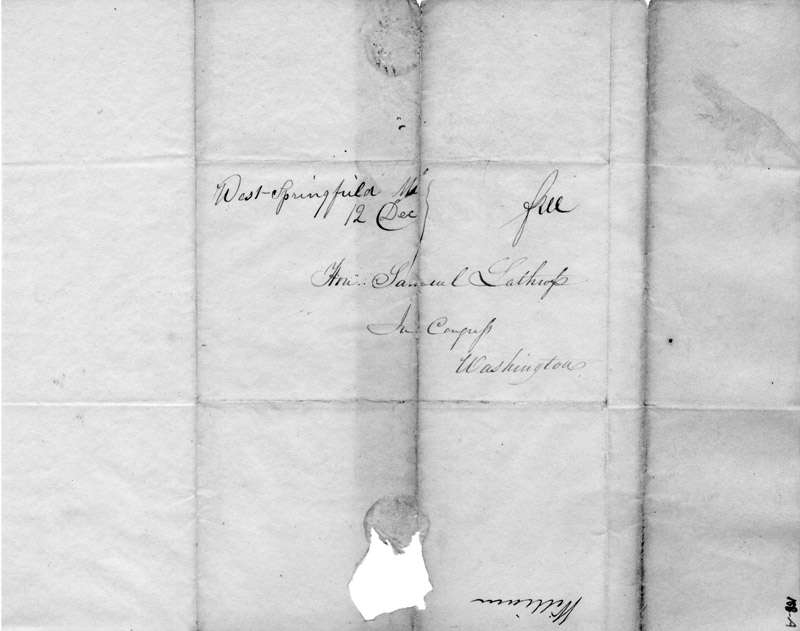 West Springfield Ms
12 Dec
free
Hon. Samuel Lathrop
In Congress
Washington
William
108-A